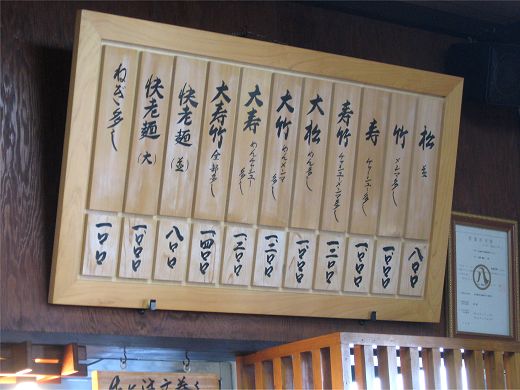 松 並 八〇〇
竹 メンマ多し 一〇〇〇
寿 チャーシュー多し 一〇〇〇
寿竹 チャーシューメンマ多し 一二〇〇
大松 めん多し 一〇〇〇
大竹 めんメンマ多し 一二〇〇
大寿 めんチャーシュー多し 一二〇〇
大寿竹 全部多し 一四〇〇
快老麺 (並) 八〇〇
快老麺 (大) 一〇〇〇
ねぎ多し 一〇〇
八